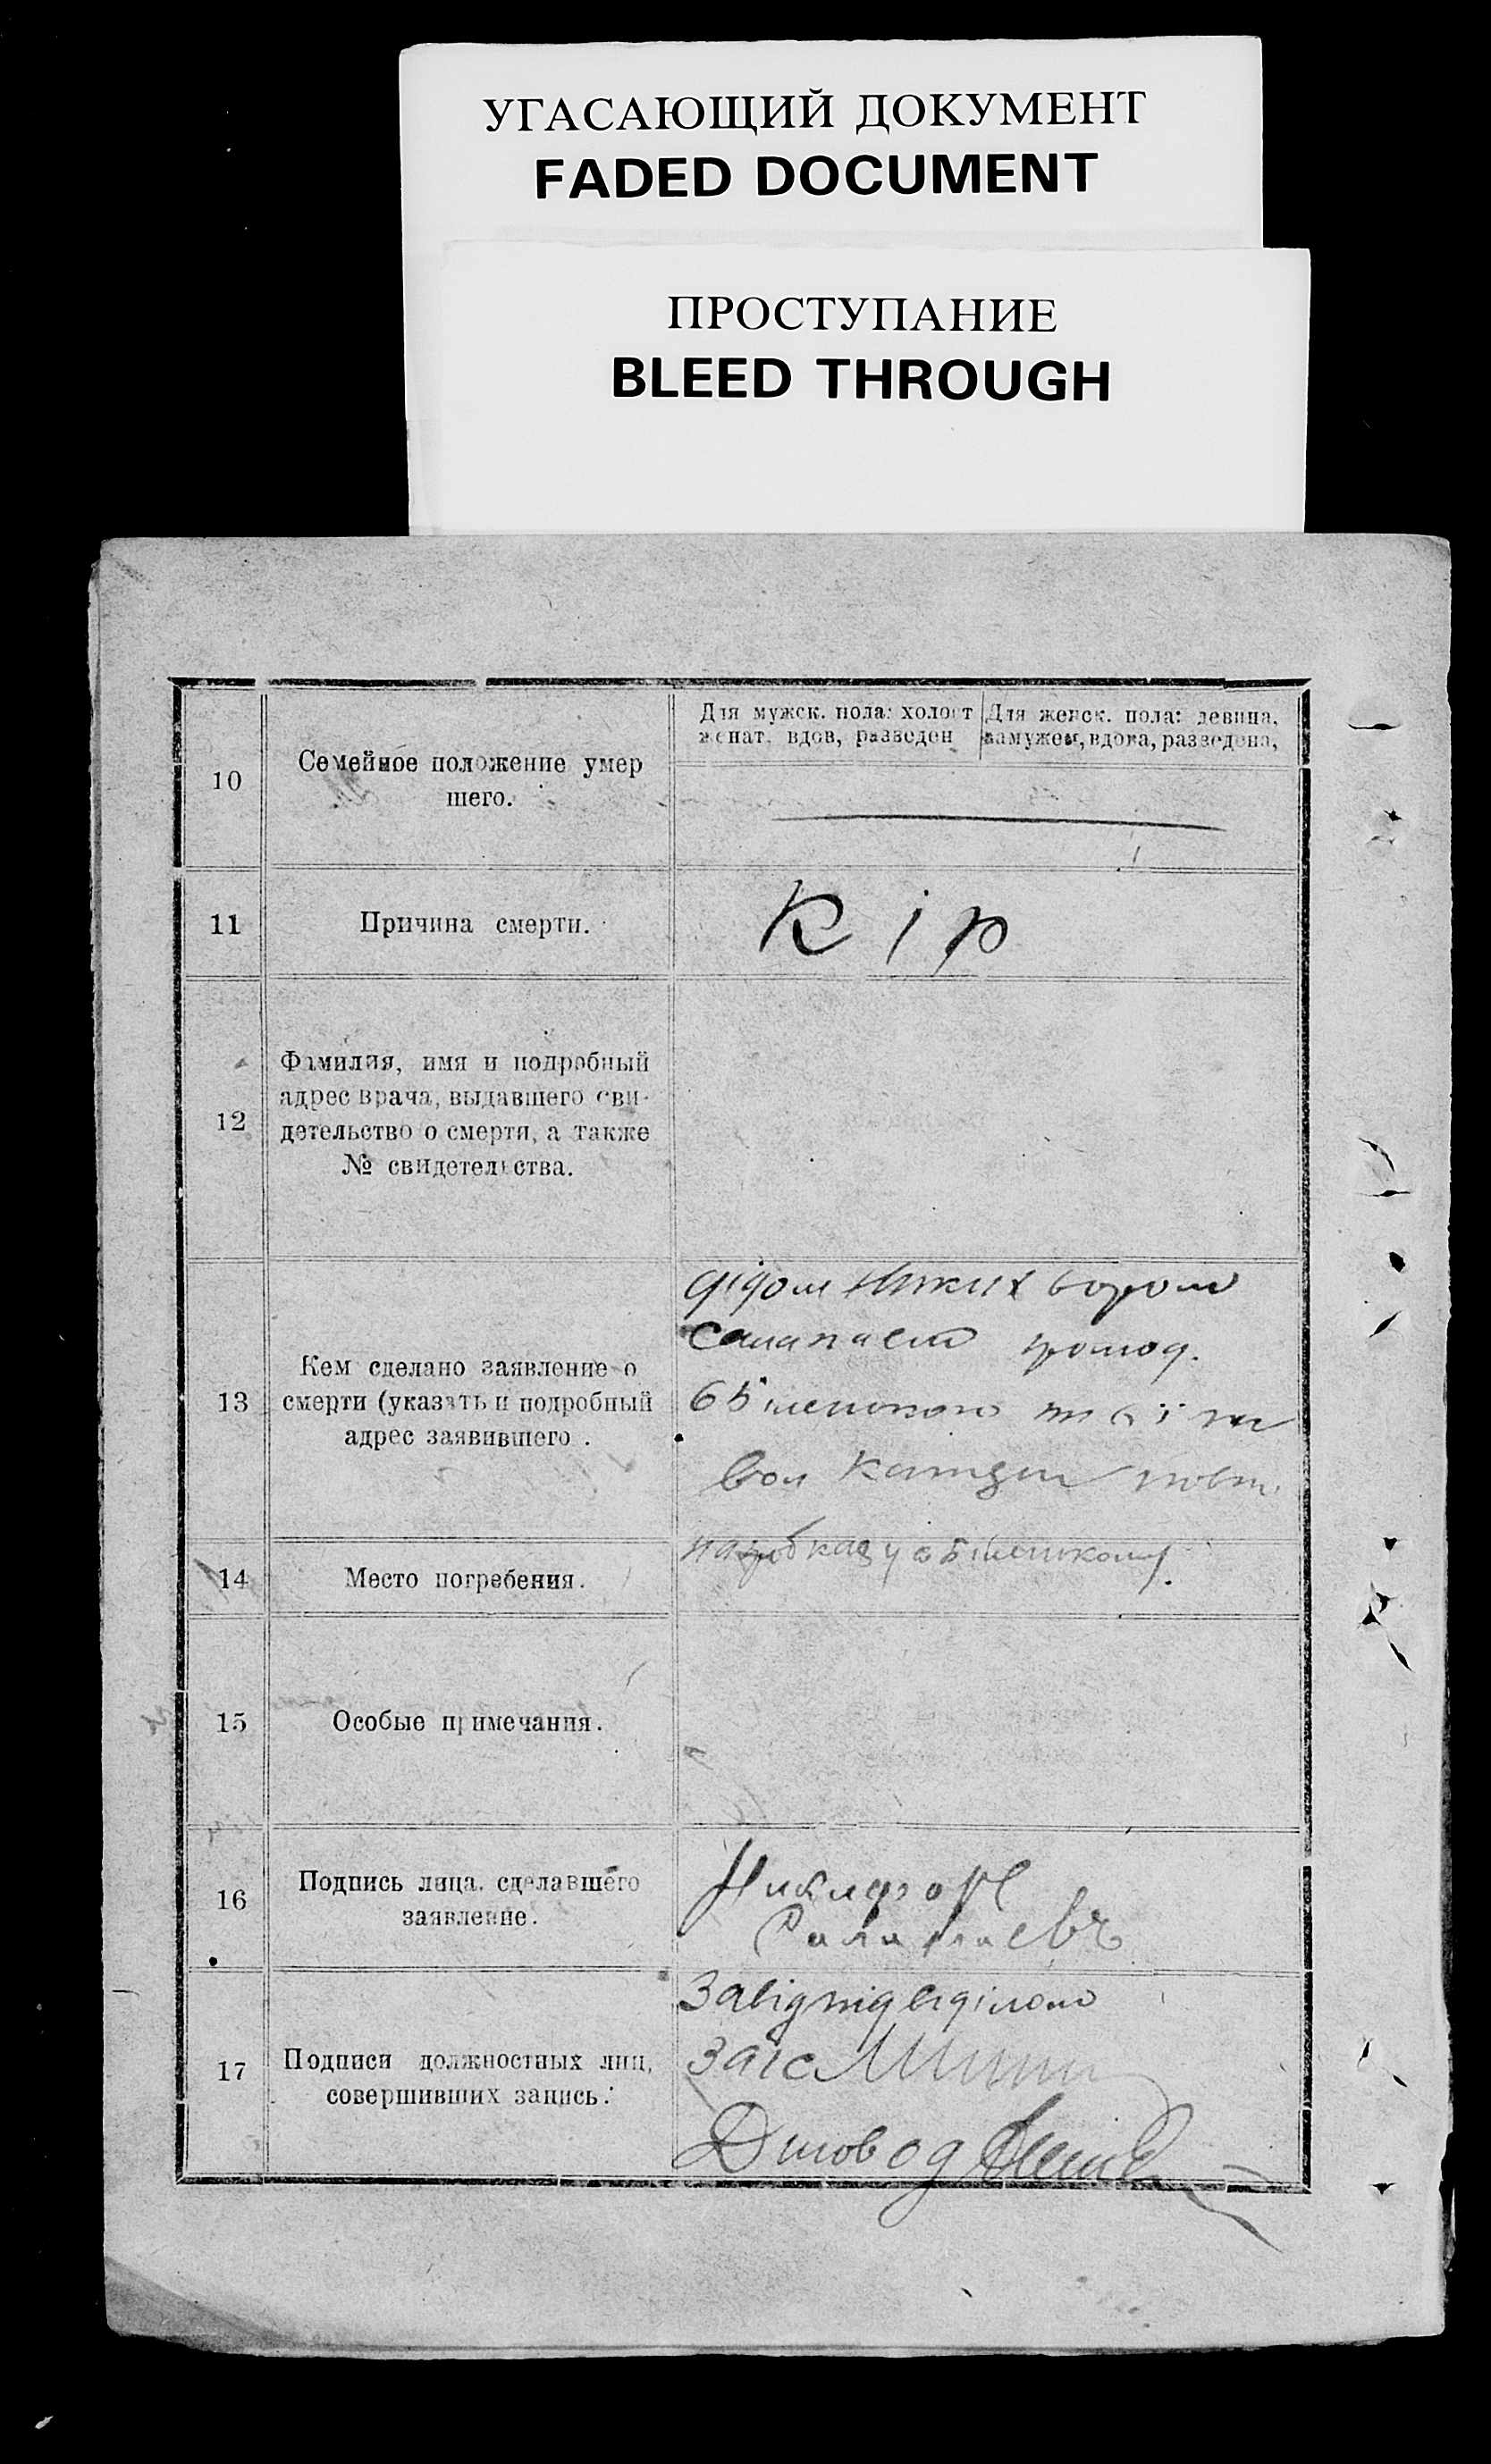 УГАСАЮЩИЙ ДОКУМЕНТ
FADED DOCUMENT
ПРОСТУПАНИЕ
BLEED THROUGH
10
Семейное положение умер
шего.
Для мужск. пола: холост
женат, вдов, разведен
Для женск. пола: девица,
замужем, вдова, разведена,
11
Причина смерти.
Кір
12
Фамилия, имя и подробный
адрес врача, выдавшего сви-
детельство о смерти, а также
№ свидетельства.
13
Кем сделано заявление о
смерти (указать и подробный
адрес заявившего .
дідом
громад.
вол
14
Место погребения.
15
Особые примечания.
16
Подпись лица, сделавшего
заявление.
Никифоръ
17
Подписи должностных лиц,
совершивших запись:
Завідпідвідділом
Загс
Діловод